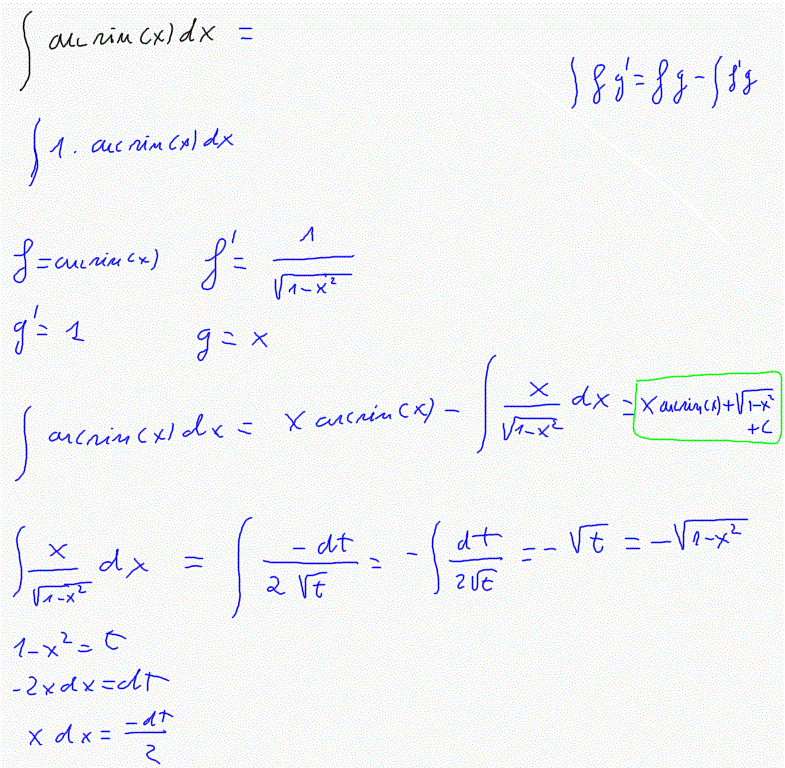 ∫ arcsin(x) dx =
∫ f g' = f g - ∫ f' g
∫ 1 · arcsin(x) dx
f = arcsin(x)   f' = 1/√(1-x²)
g' = 1   g = x
∫ arcsin(x) dx = x arcsin(x) - ∫ x/√(1-x²) dx = x arcsin(x) + √(1-x²)
+ C
∫ x/√(1-x²) dx = ∫ -dt/(2√t) = -∫ dt/(2√t) = -√t = -√(1-x²)
1-x² = t
-2x dx = dt
x dx = -dt/2